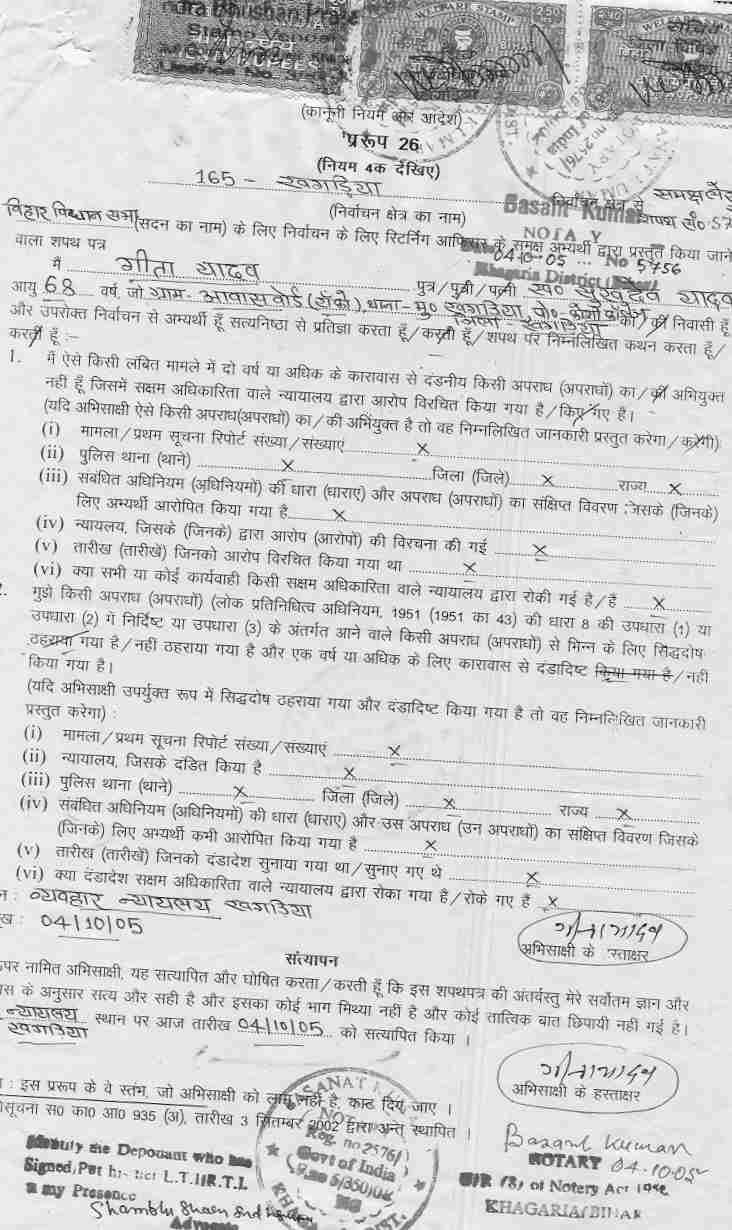 Stamp Vendor
WELFARE STAMP
(कानूनी नियम और आदेश)
प्ररूप 26
(नियम 4क देखिए)
165 - खगड़िया
निर्वाचन क्षेत्र से
(निर्वाचन क्षेत्र का नाम)
Basant Kumar
बिहार विधान सभा (सदन का नाम) के लिए निर्वाचन के लिए रिटर्निंग आफिसर के समक्ष अभ्यर्थी द्वारा प्रस्तुत किया जाने
वाला शपथ पत्र
04-10-05 ... No 5756
Khagaria District
मैं गीता यादव पुत्र/पुत्री/पत्नी स्व० सुखदेव यादव
आयु 68 वर्ष, जो ग्राम- आवास बोर्ड थाना- मु० खगड़िया, जिला- खगड़िया का/की निवासी हूँ
और उपरोक्त निर्वाचन से अभ्यर्थी हूँ सत्यनिष्ठा से प्रतिज्ञा करता हूँ/करती हूँ/शपथ पर निम्नलिखित कथन करता हूँ/
करती हूँ :-
1. मैं ऐसे किसी लंबित मामले में दो वर्ष या अधिक के कारावास से दंडनीय किसी अपराध (अपराधों) का/की अभियुक्त
नहीं हूँ जिसमें सक्षम अधिकारिता वाले न्यायालय द्वारा आरोप विरचित किया गया है/किए गए है।
(यदि अभिसाक्षी ऐसे किसी अपराध(अपराधों) का/की अभियुक्त है तो वह निम्नलिखित जानकारी प्रस्तुत करेगा/करेगी)
(i) मामला/प्रथम सूचना रिपोर्ट संख्या/संख्याएं x
(ii) पुलिस थाना (थाने) x जिला (जिले) x राज्य x
(iii) संबंधित अधिनियम (अधिनियमों) की धारा (धाराएं) और अपराध (अपराधों) का संक्षिप्त विवरण जिसके (जिनके)
लिए अभ्यर्थी आरोपित किया गया है x
(iv) न्यायलय, जिसके (जिनके) द्वारा आरोप (आरोपों) की विरचना की गई x
(v) तारीख (तारीखें) जिनको आरोप विरचित किया गया था x
(vi) क्या सभी या कोई कार्यवाही किसी सक्षम अधिकारिता वाले न्यायालय द्वारा रोकी गई है/हैं x
मुझे किसी अपराध (अपराधों) (लोक प्रतिनिधित्व अधिनियम, 1951 (1951 का 43) की धारा 8 की उपधारा (1) या
उपधारा (2) में निर्दिष्ट या उपधारा (3) के अंतर्गत आने वाले किसी अपराध (अपराधों) से भिन्न के लिए सिद्धदोष
ठहराया गया है/नहीं ठहराया गया है और एक वर्ष या अधिक के लिए कारावास से दंडादिष्ट किया गया है/नहीं
किया गया है।
(यदि अभिसाक्षी उपर्युक्त रूप में सिद्धदोष ठहराया गया और दंडादिष्ट किया गया है तो वह निम्नलिखित जानकारी
प्रस्तुत करेगा) :
(i) मामला/प्रथम सूचना रिपोर्ट संख्या/संख्याएं x
(ii) न्यायालय, जिसके दंडित किया है x
(iii) पुलिस थाना (थाने) x जिला (जिले) x राज्य x
(iv) संबंधित अधिनियम (अधिनियमों) की धारा (धाराएं) और उस अपराध (उन अपराधों) का संक्षिप्त विवरण जिसके
(जिनके) लिए अभ्यर्थी कभी आरोपित किया गया है x
(v) तारीख (तारीखें) जिनको दंडादेश सुनाया गया था/सुनाए गए थे x
(vi) क्या दंडादेश सक्षम अधिकारिता वाले न्यायालय द्वारा रोका गया है/रोके गए हैं x
न : व्यवहार न्यायलय खगड़िया
ख : 04/10/05
अभिसाक्षी के हस्ताक्षर
संत्यापन
पर नामित अभिसाक्षी, यह सत्यापित और घोषित करता/करती हूँ कि इस शपथपत्र की अंतर्वस्तु मेरे सर्वोतम ज्ञान और
स के अनुसार सत्य और सही है और इसका कोई भाग मिथ्या नहीं है और कोई तात्विक बात छिपायी नहीं गई है।
न्यायलय खगड़िया स्थान पर आज तारीख 04/10/05 को सत्यापित किया ।
अभिसाक्षी के हस्ताक्षर
: इस प्ररूप के वे स्तंभ, जो अभिसाक्षी को लागू नहीं है, काट दिए जाए ।
सूचना स० का० आ० 935 (अ), तारीख 3 सितम्बर 2002 द्वारा अन्त स्थापित ।
Reg. no. 2576/
Govt of India
Identify the Deponant who has
Signed/Put L.T.I/R.T.I.
in my Presence
Advocate
Basant Kumar
NOTARY 04-10-05
U/R (8) of Notery Act 1952
KHAGARIA (BIHAR